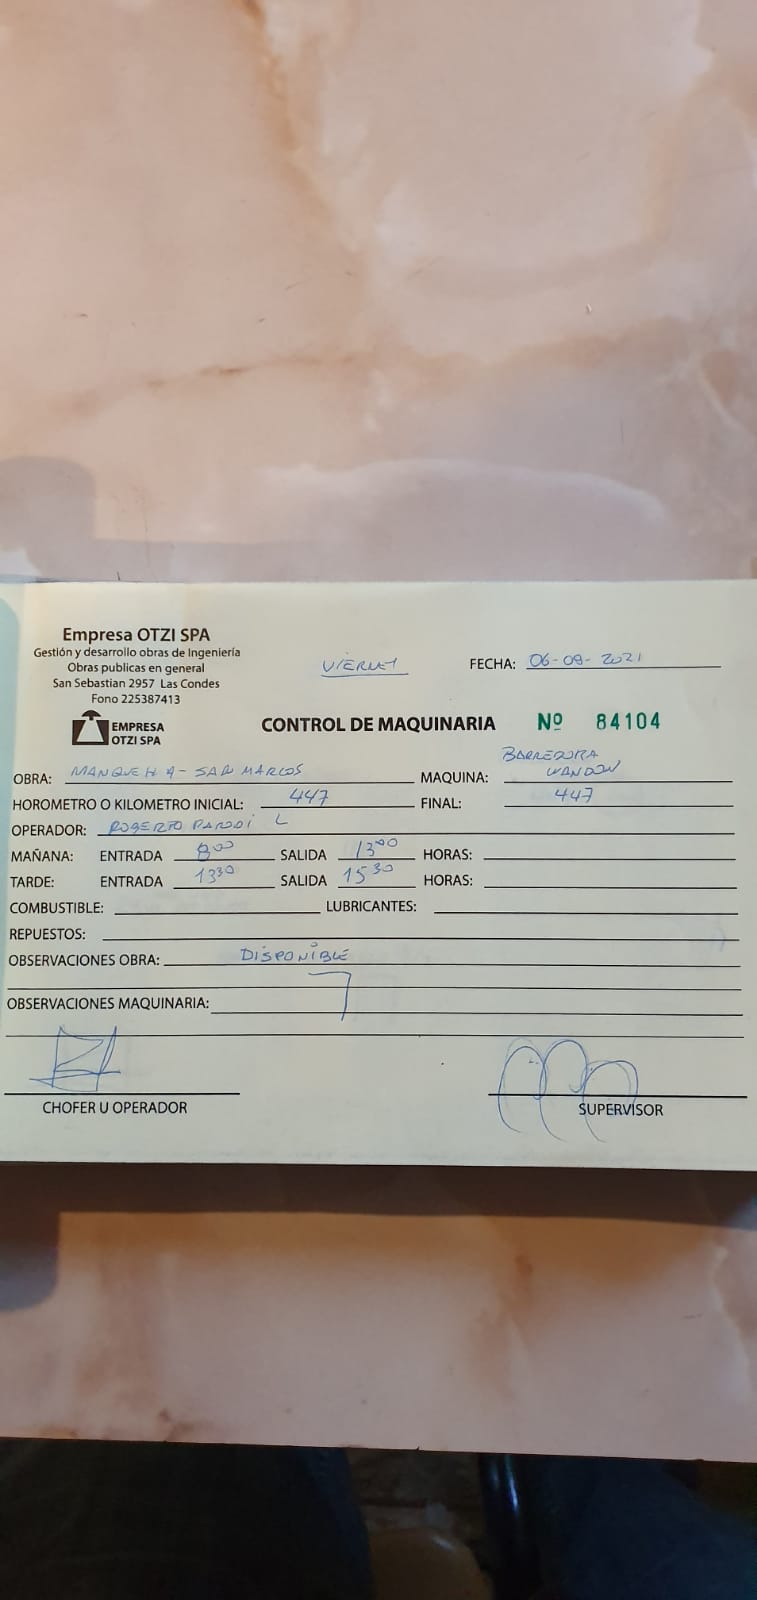 Empresa OTZI SPA
Gestión y desarrollo obras de Ingeniería
Obras publicas en general
San Sebastian 2957 Las Condes
Fono 225387413
VIERNES FECHA: 06-08-2021
EMPRESA
OTZI SPA
CONTROL DE MAQUINARIA Nº 84104
OBRA: MANQUEHA - SAN MARCOS MAQUINA: BARREDORA
HOROMETRO O KILOMETRO INICIAL: 447 FINAL: 447
OPERADOR: ROBERTO PARODI L
MAÑANA: ENTRADA 8 00 SALIDA 13 00 HORAS:
TARDE: ENTRADA 13 30 SALIDA 15 30 HORAS:
COMBUSTIBLE: LUBRICANTES:
REPUESTOS:
OBSERVACIONES OBRA: DISPONIBLE
OBSERVACIONES MAQUINARIA:
CHOFER U OPERADOR SUPERVISOR